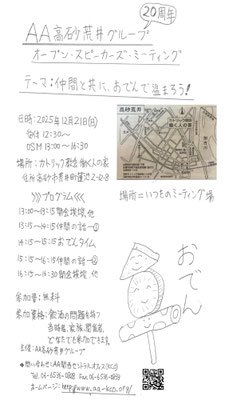 20周年
AA高砂荒井グループ
オープン・スピーカーズ・ミーティング
テーマ:仲間と共に、おでんで温まろう!
日時:2025年12月21日(日)
受付 12:30~
OSM 13:00~16:30
場所:カトリック教会 働く人の家
住所 高砂市荒井町蓮池2-8-8
高砂荒井
カトリック教会
働く人の家
場所=いつものミーティング場
》》プログラム《《
13:00~13:15 開会挨拶、他
13:15~14:15 仲間の話-①
14:15~15:15 おでんタイム
15:15~16:15 仲間の話-②
16:15~16:30 閉会挨拶、他
おでん
参加費:無料
参加資格:飲酒の問題を持つ
当時者、家族、関係者、
どなたでも参加できます。
主催:AA高砂荒井グループ
問い合せ:AA関西セントラルオフィス(KCO)
ホームページ:http://www.aa-kco.org/